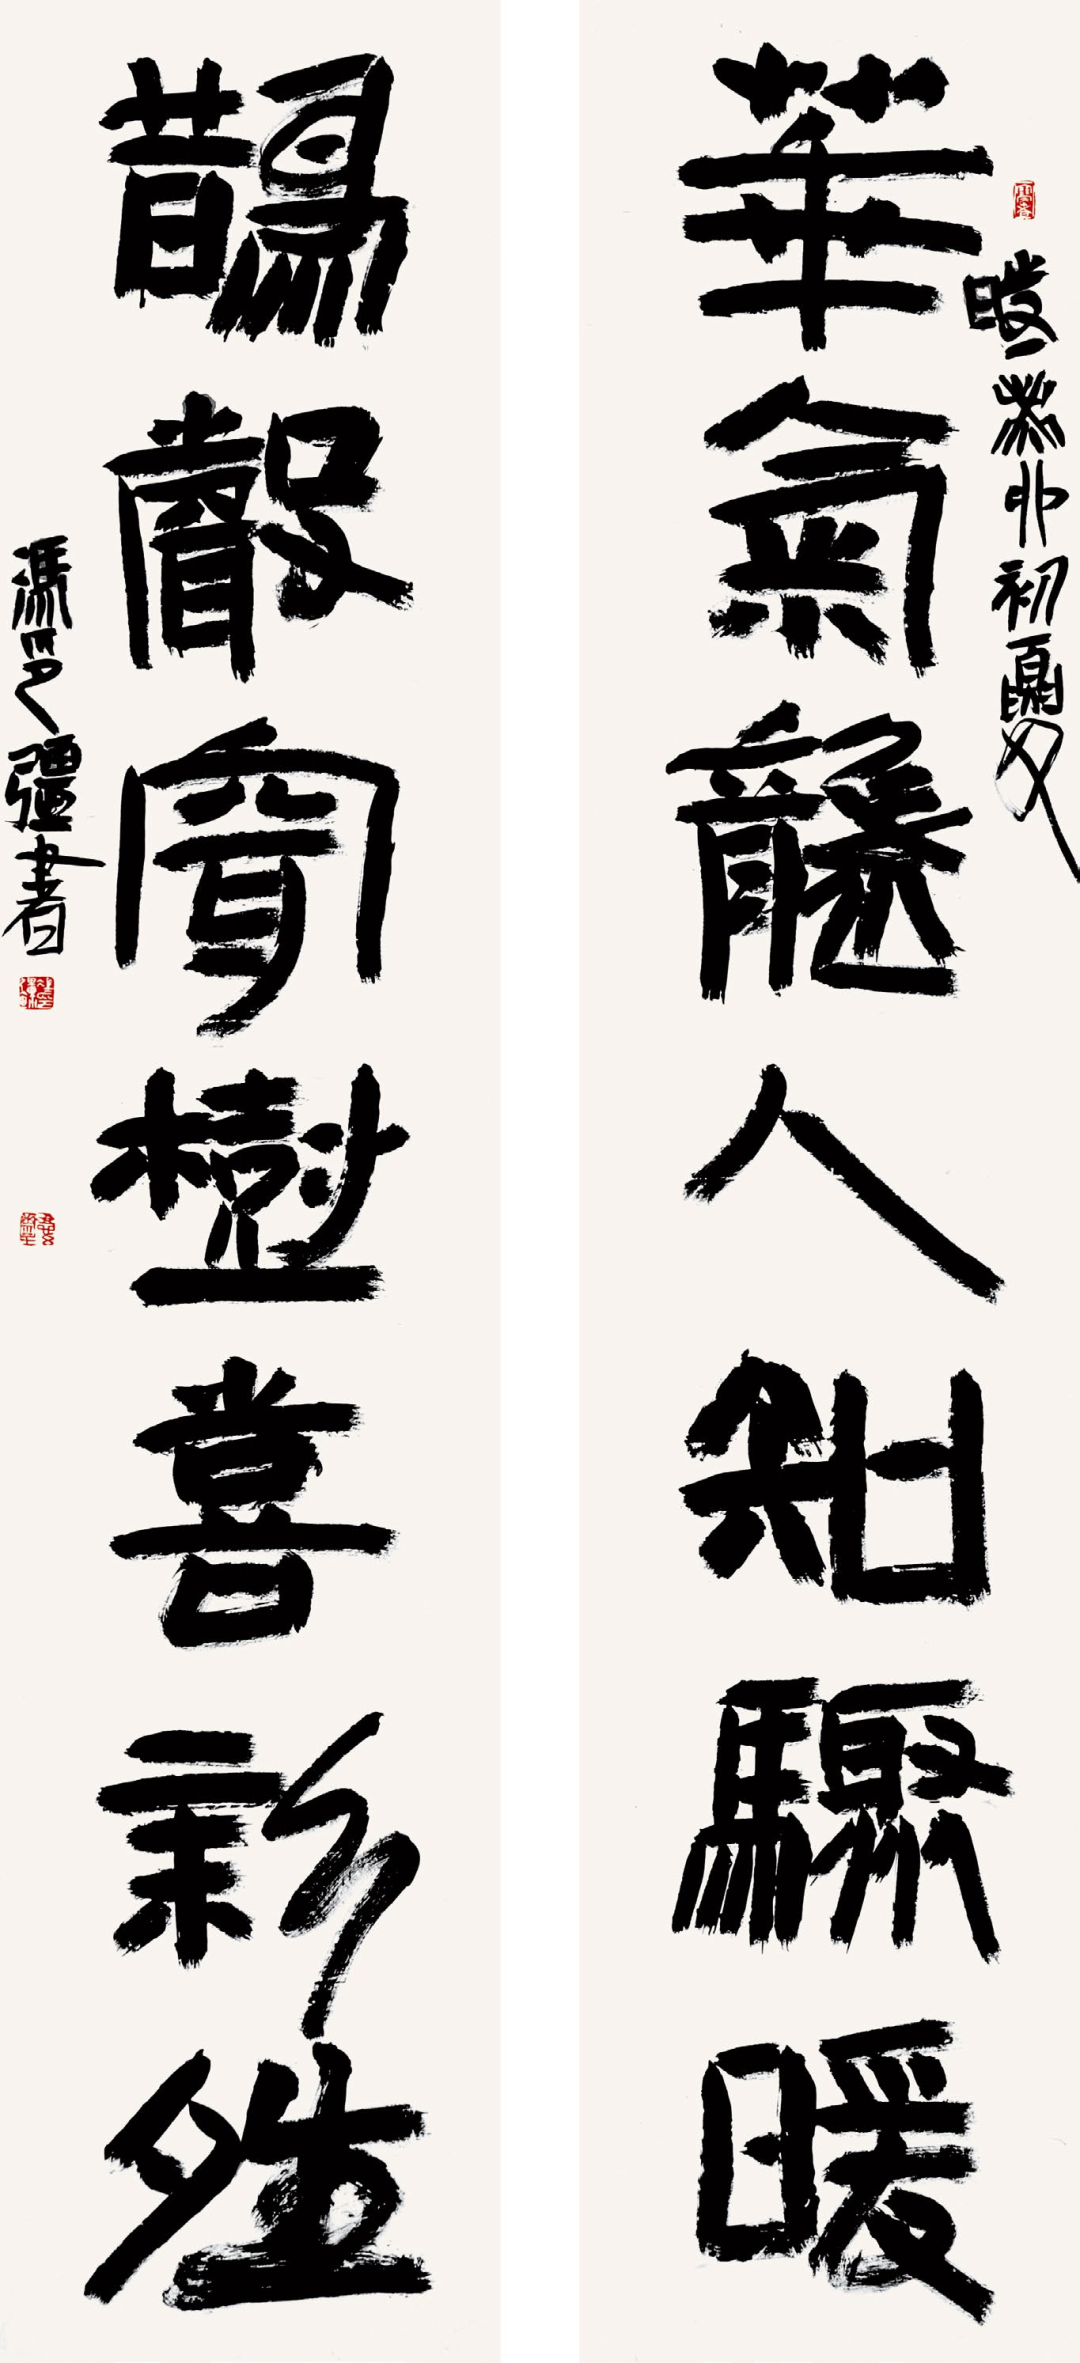 華氣襲人知驟暖
癸卯初夏
鵲聲穿樹喜新夝
馮印彊書